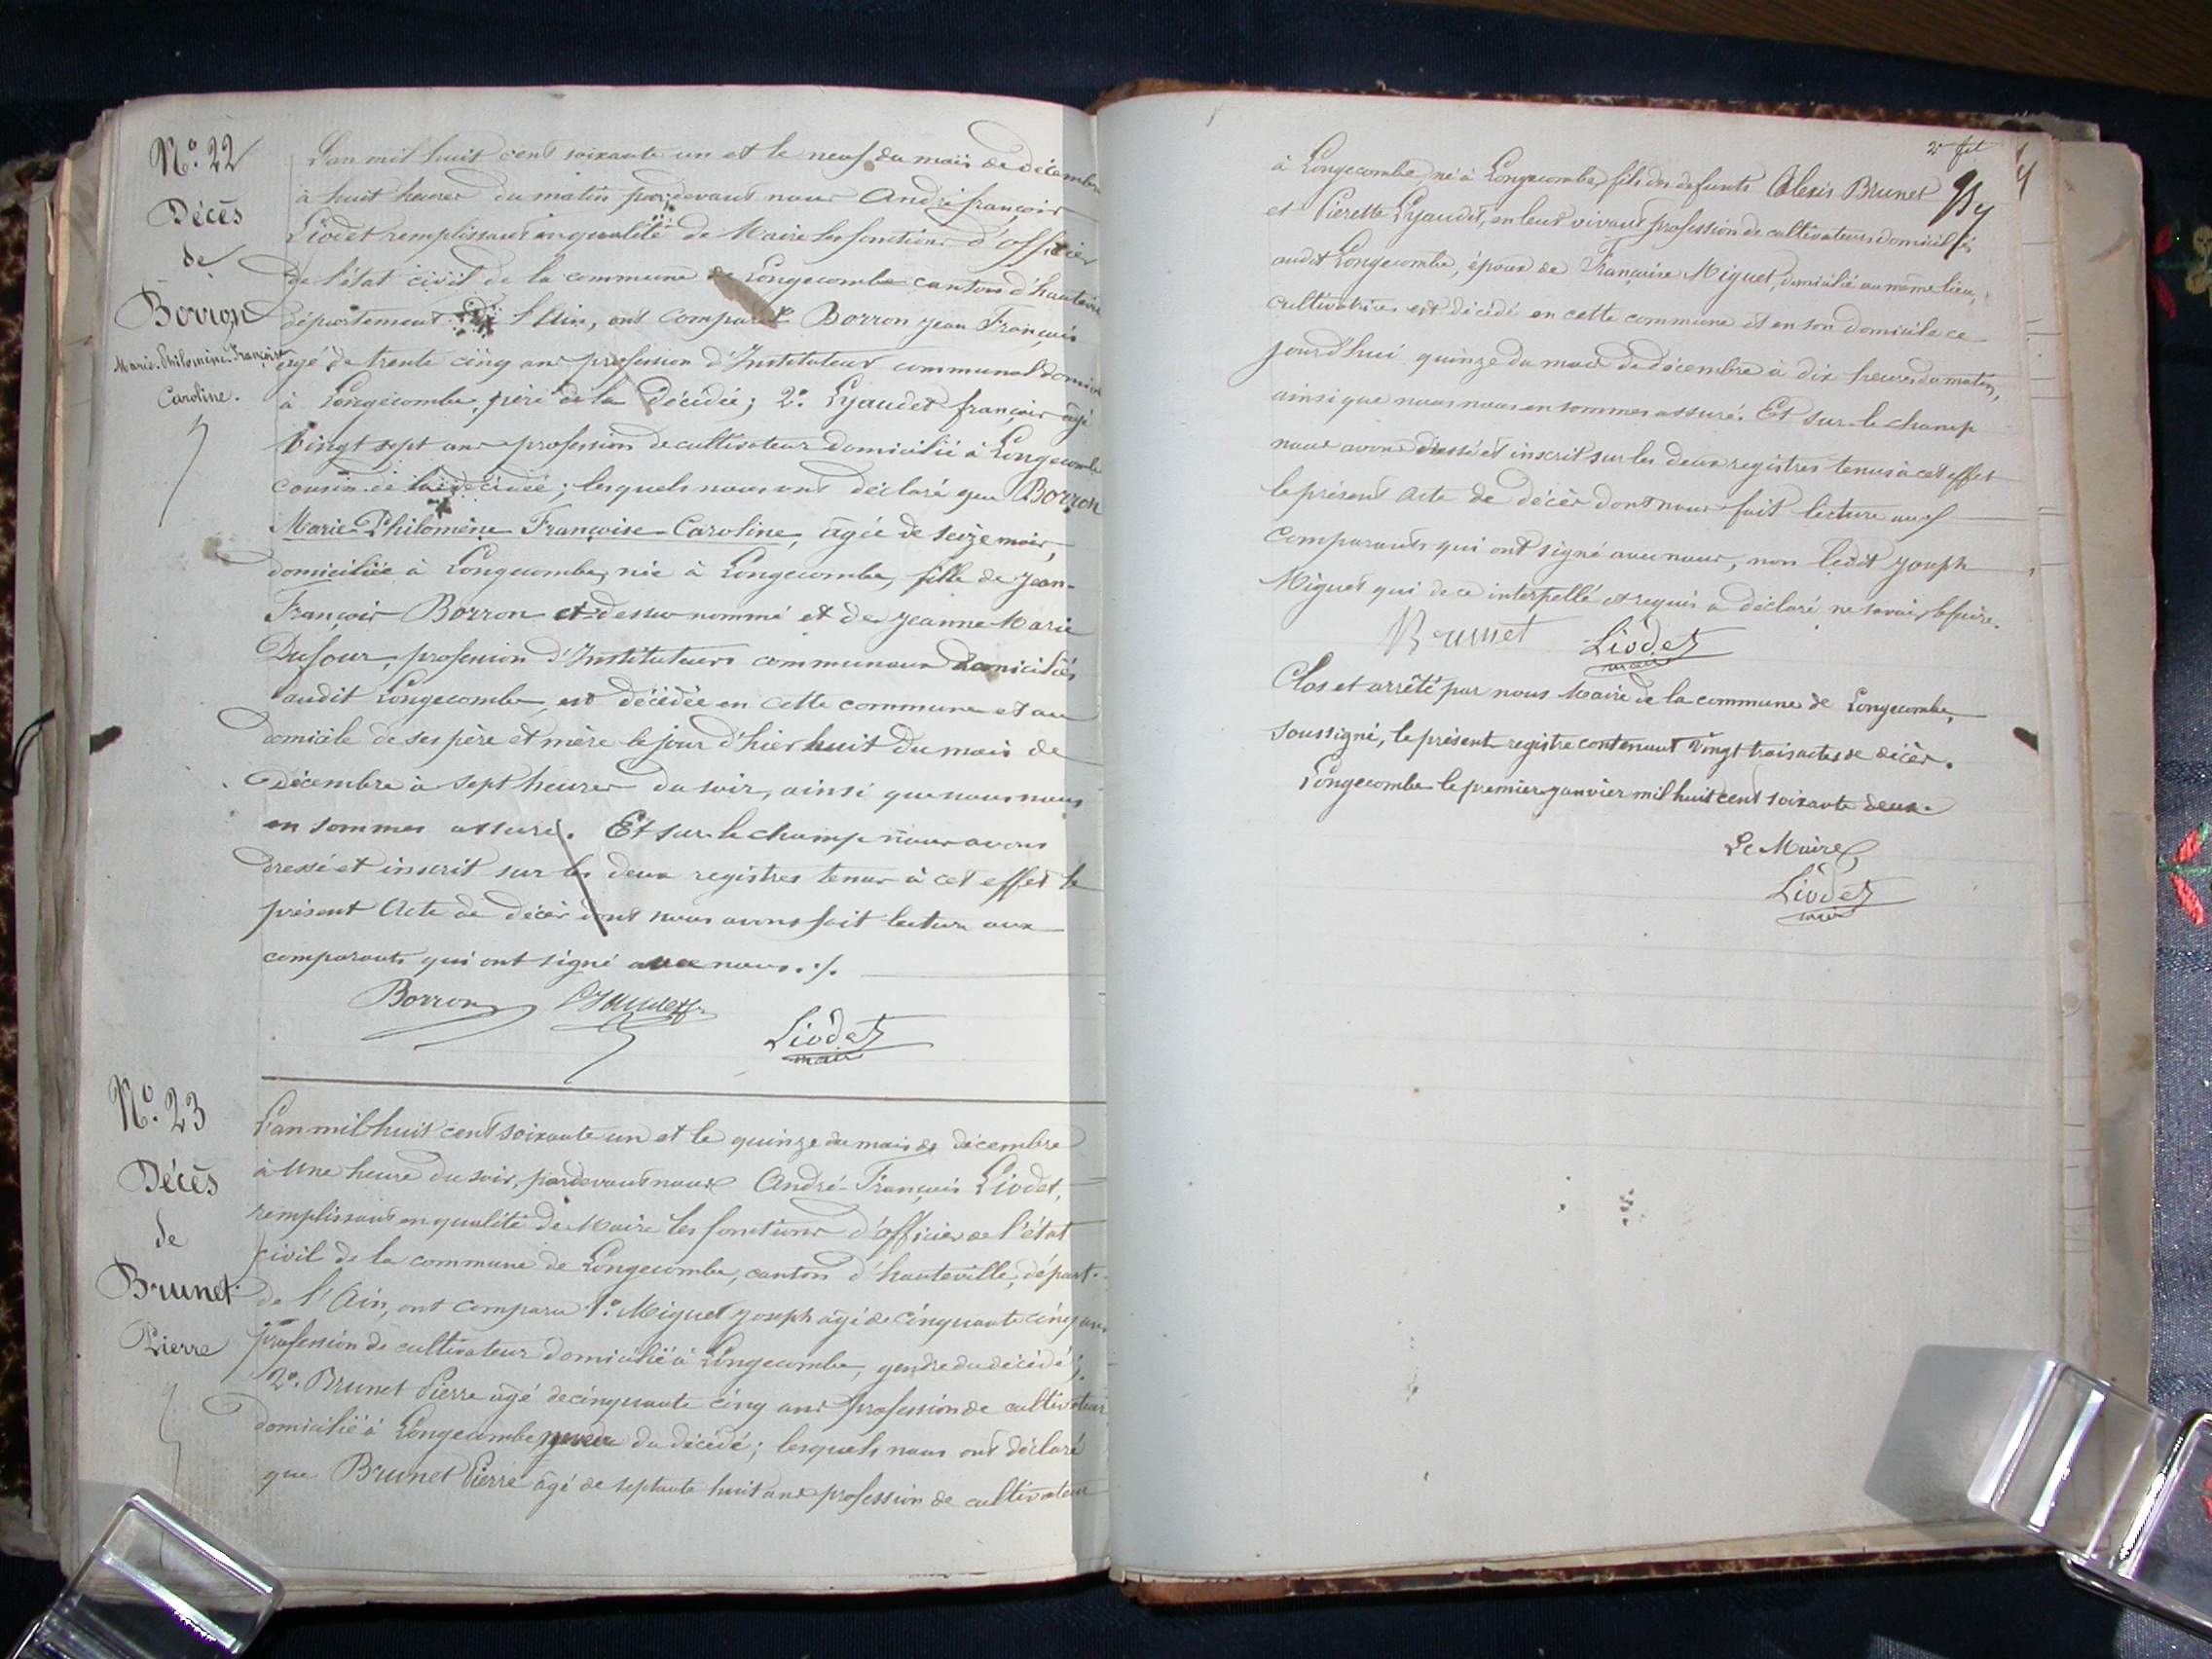 N° 22
Décès
de
Borron
Marie-Philomène-Françoise
Caroline.
L'an mil huit cent soixante un et le neuf du mois de décembre
à huit heures du matin pardevant nous André françois
Liodet remplissant en qualité de Maire les fonctions d'officier
de l'état civil de la commune de Longecombe canton d'hauteville
département de l'Ain, ont comparu 1° Borron jean François
agé de trente cinq ans profession d'Instituteur communal domicilié
à Longecombe, père de la décédée; 2° Lyaudet françois agé
Vingt sept ans profession de cultivateur domicilié à Longecombe
cousin de la décédée; lesquels nous ont déclaré que Borron
Marie-Philomène Françoise-Caroline, âgée de seize mois,
domiciliée à Longecombe, née à Longecombe, fille de jean-
François Borron ci-dessus nommé et de jeanne Marie
Dufour, profession d'Instituteurs communaux domiciliés
audit Longecombe, est décédée en cette commune et au
domicile de ses père et mère le jour d'hier huit du mois de
Décembre à sept heures du soir, ainsi que nous nous
en sommes assuré. Et sur-le champ nous avons
dressé et inscrit sur les deux registres tenus à cet effet le
présent Acte de décès dont nous avons fait lecture aux
comparants qui ont signé avec nous ./.
Borron Lyaudet
Liodet
maire
N° 23
Décès
de
Brunet
Pierre
L'an mil huit cent soixante un et le quinze du mois de décembre
à Une heure du soir, pardevant nous André-François Liodet,
remplissant en qualité de Maire les fonctions d'officier de l'état
civil de la commune de Longecombe, canton d'hauteville, départ.
de l'Ain, ont comparu 1° Miguet joseph agé de cinquante cinq ans
profession de cultivateur domicilié à Longecombe, gendre du décédé;
2° Brunet Pierre agé de cinquante cinq ans profession de cultivateur
domicilié à Longecombe neveu du décédé; lesquels nous ont déclaré
que Brunet Pierre âgé de septante huit ans profession de cultivateur
à Longecombe, né à Longecombe, fils des defunts Alexis Brunet
et Pierette Lyaudet, en leur vivant profession de cultivateurs domiciliés
audit Longecombe, époux de Françoise Miguet, domiciliée au même lieu,
cultivatrice est décédé en cette commune et en son domicile ce
jourd'hui quinze du mois de décembre à dix heures du matin,
ainsi que nous nous en sommes assuré. Et sur-le champ
nous avons dressé et inscrit sur les deux registres tenus à cet effet
le présent Acte de décès dont nous fait lecture aux
Comparants qui ont signé avec nous, non ledit joseph
Miguet qui de ce interpellé et requis a déclaré ne savoir le faire.
Brunet Liodet
maire
Clos et arrêté par nous Maire de la commune de Longecombe,
soussigné, le présent registre contenant Vingt trois actes de décès.
Longecombe le premier janvier mil huit cent soixante deux.
Le Maire
Liodet
maire